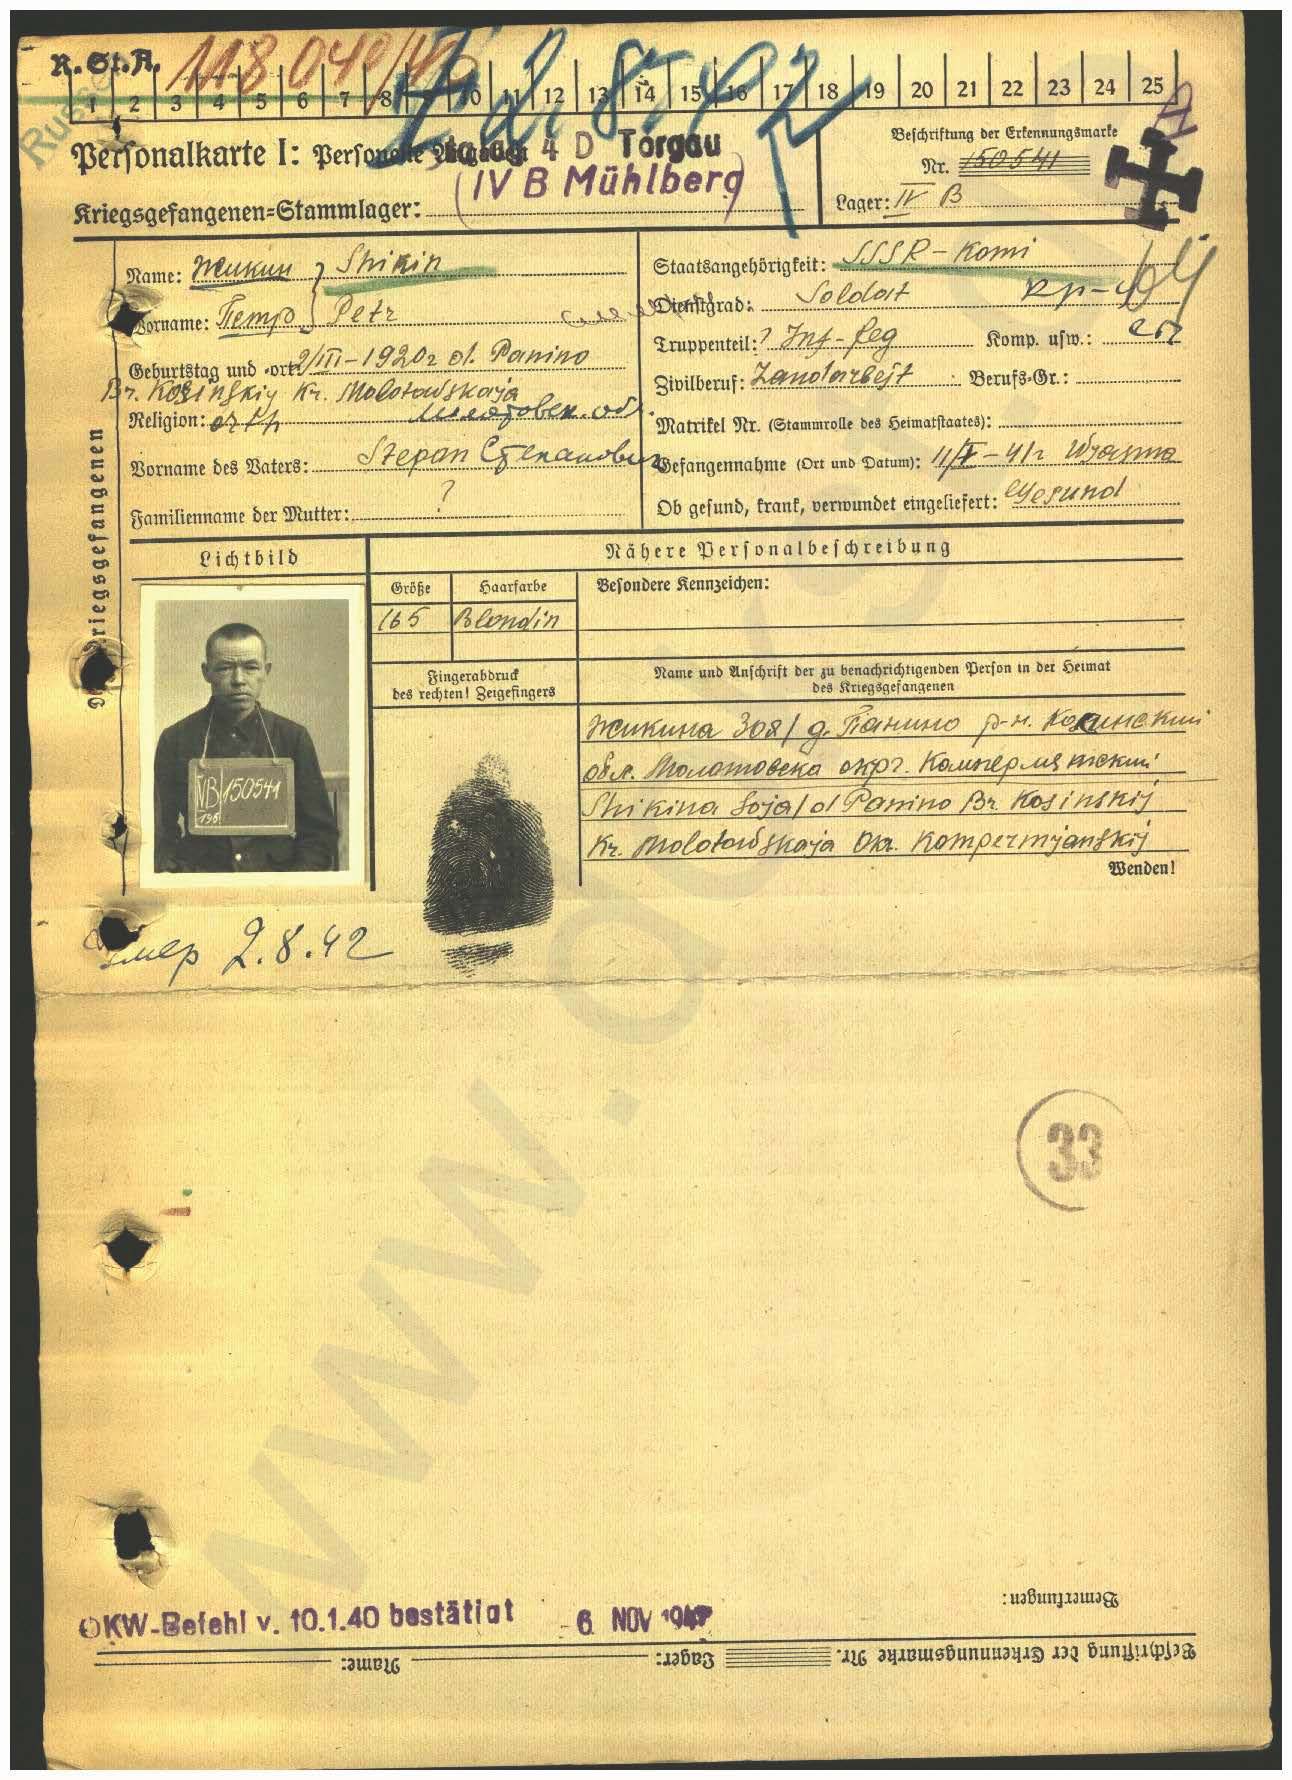 R. St. A. 118 040/42
2.8.42
Russe
1 2 3 4 5 6 7 8 9 10 11 12 13 14 15 16 17 18 19 20 21 22 23 24 25
Personalkarte I: Personelle Angaben
4 D Torgau
(IV B Mühlberg)
Kriegsgefangenen=Stammlager:
Beschriftung der Erkennungsmarke
Nr. 150541
Lager: IV B
Des Kriegsgefangenen
Name: Жикин Shikin
Vorname: Петр Petr
Geburtstag und -ort: 9/III-1920г d. Panino
Br. Kosinskij Kr. Molotowskaja
Religion: orth
Vorname des Vaters: Stepan Степанович
Familienname der Mutter: ?
Staatsangehörigkeit: SSSR-Komi
Dienstgrad: Soldat
Truppenteil: ? Inf-Reg Komp. usw.:
Zivilberuf: Landarbejt Berufs-Gr.:
Matrikel Nr. (Stammrolle des Heimatstaates):
Gefangennahme (Ort und Datum): 11/X-41г Wjasma
Ob gesund, krank, verwundet eingeliefert: Gesund
Lichtbild
Nähere Personalbeschreibung
Größe Haarfarbe Besondere Kennzeichen:
165 Blondin
Fingerabdruck
des rechten! Zeigefingers
Name und Anschrift der zu benachrichtigenden Person in der Heimat
des Kriegsgefangenen
Жикина Зоя/ д. Панино р-н. Косинский
обл. Молотовска окрг. Компермянский
Shikina Soja/d Panino Br Kosinskij
Kr. Molotowskaja Okr. Kompermjanskij
Wenden!
IVB 150541
196
Умер 2.8.42
33
Bemerkungen:
OKW-Befehl v. 10.1.40 bestätigt 6 NOV
Beschriftung der Erkennungsmarke Nr. Lager: Name:
www.